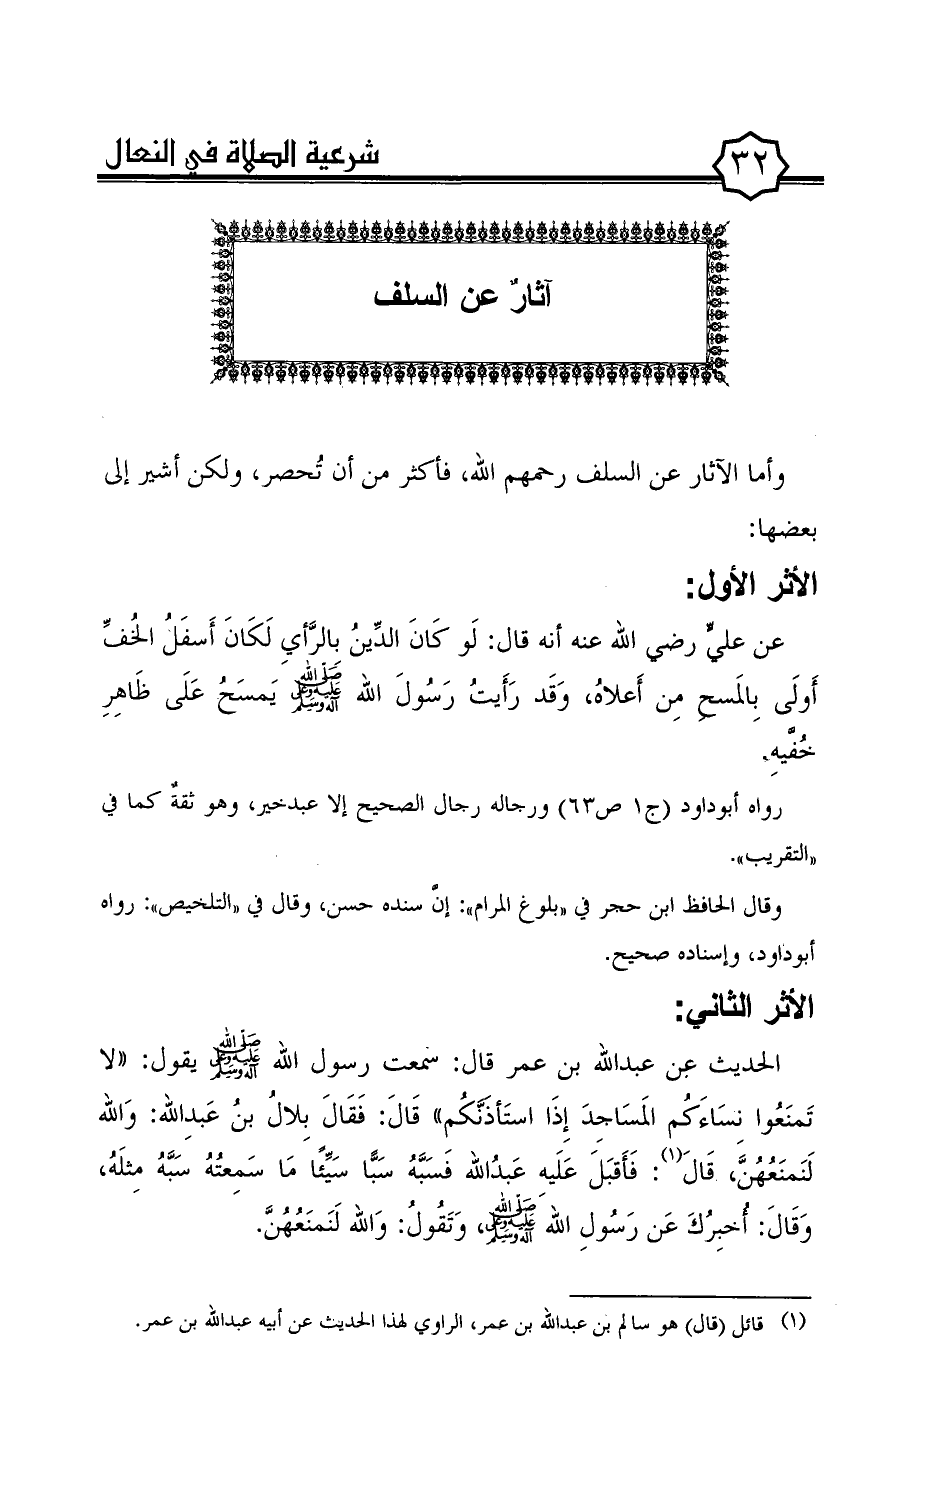 ٣٢
شرعية الصلاة في النعال
آثارٌ عن السلف
وأما الآثار عن السلف رحمهم الله، فأكثر من أن تُحصر، ولكن أشير إلى
بعضها:
الأثر الأول:
عن عليٍّ رضي الله عنه أنه قال: لَو كَانَ الدِّينُ بالرَّأيِ لَكَانَ أَسفَلُ الخُفِّ
أَولَى بِالمَسحِ مِن أَعلاهُ، وَقَد رَأَيتُ رَسُولَ الله صلى الله عليه وآله وسلم يَمسَحُ عَلَى ظَاهِرِ
خُفَّيهِ.
رواه أبوداود (ج١ ص٦٣) ورجاله رجال الصحيح إلا عبدخير، وهو ثقةٌ كما في
«التقريب».
وقال الحافظ ابن حجر في «بلوغ المرام»: إنَّ سنده حسن، وقال في «التلخيص»: رواه
أبوداود، وإسناده صحيح.
الأثر الثاني:
الحديث عن عبدالله بن عمر قال: سمعت رسول الله صلى الله عليه وآله وسلم يقول: «لا
تَمنَعُوا نِسَاءَكُم المَسَاجِدَ إِذَا استَأذَنَّكُم» قَالَ: فَقَالَ بِلالُ بنُ عَبدِالله: وَالله
لَنَمنَعُهُنَّ، قَالَ(١): فَأَقبَلَ عَلَيهِ عَبدُالله فَسَبَّهُ سَبًّا سَيِّئًا مَا سَمِعتُهُ سَبَّهُ مِثلَهُ،
وَقَالَ: أُخبِرُكَ عَن رَسُولِ الله صلى الله عليه وآله وسلم، وَتَقُولُ: وَالله لَنَمنَعُهُنَّ.
(١) قائل (قال) هو سالم بن عبدالله بن عمر، الراوي لهذا الحديث عن أبيه عبدالله بن عمر.